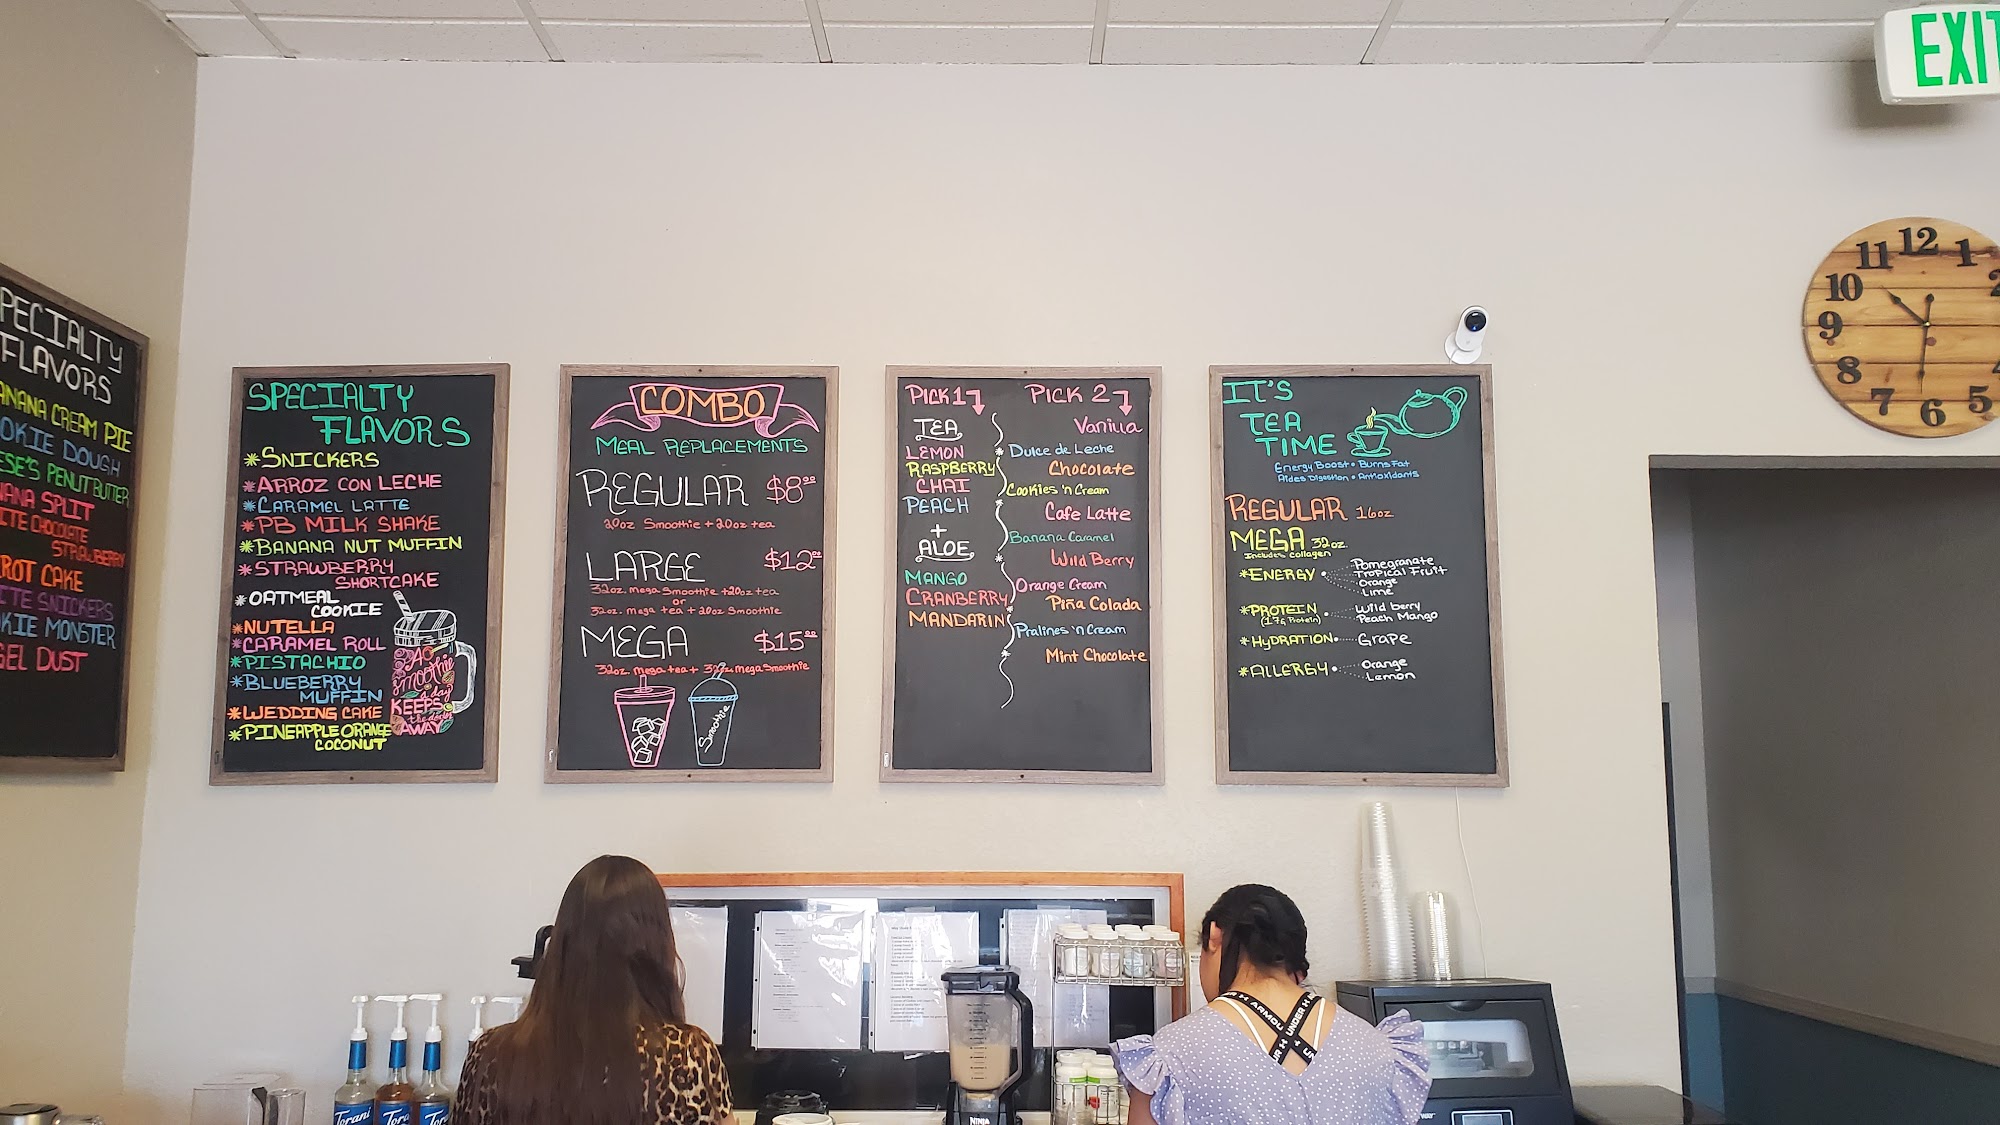 EXIT
FLAVORS
CREAM PIE
DOUGH
PENUTBUTTER
SPLIT
CHOCOLATE
STRAWBERRY
CAKE
SNICKERS
MONSTER
DUST
SPECIALTY
FLAVORS
*SNICKERS
*ARROZ CON LECHE
*CARAMEL LATTE
*PB MILK SHAKE
*BANANA NUT MUFFIN
*STRAWBERRY
SHORTCAKE
*OATMEAL
COOKIE
*NUTELLA
*CARAMEL ROLL
*PISTACHIO
*BLUEBERRY
MUFFIN
*WEDDING CAKE
*PINEAPPLE ORANGE
COCONUT
A
Smoothie
a day
KEEPS
the doctor
AWAY
COMBO
MEAL REPLACEMENTS
REGULAR $8.00
20oz Smoothie + 20oz tea
LARGE $12.00
32oz. mega Smoothie + 20oz tea
or
32oz. mega tea + 20oz Smoothie
MEGA $15.00
32oz. mega tea + 32oz. mega Smoothie
Smoothie
PICK 1
TEA
LEMON
RASPBERRY
CHAI
PEACH
+
ALOE
MANGO
CRANBERRY
MANDARIN
PICK 2
Vanilla
Dulce de Leche
Chocolate
Cookies 'n Cream
Cafe Latte
Banana Caramel
Wild Berry
Orange Cream
Piña Colada
Pralines 'n Cream
Mint Chocolate
IT'S
TEA
TIME
Energy Boost • Burns Fat
Aides Digestion • Antioxidants
REGULAR 16oz
MEGA 32oz.
Includes collagen
*ENERGY Pomegranate
Tropical Fruit
Orange
Lime
*PROTEIN Wild berry
(17g Protein) Peach Mango
*HYDRATION Grape
*ALLERGY Orange
Lemon
11 12 1
10
9
8
7 6 5
Torani
NINJA
UNDER ARMOUR